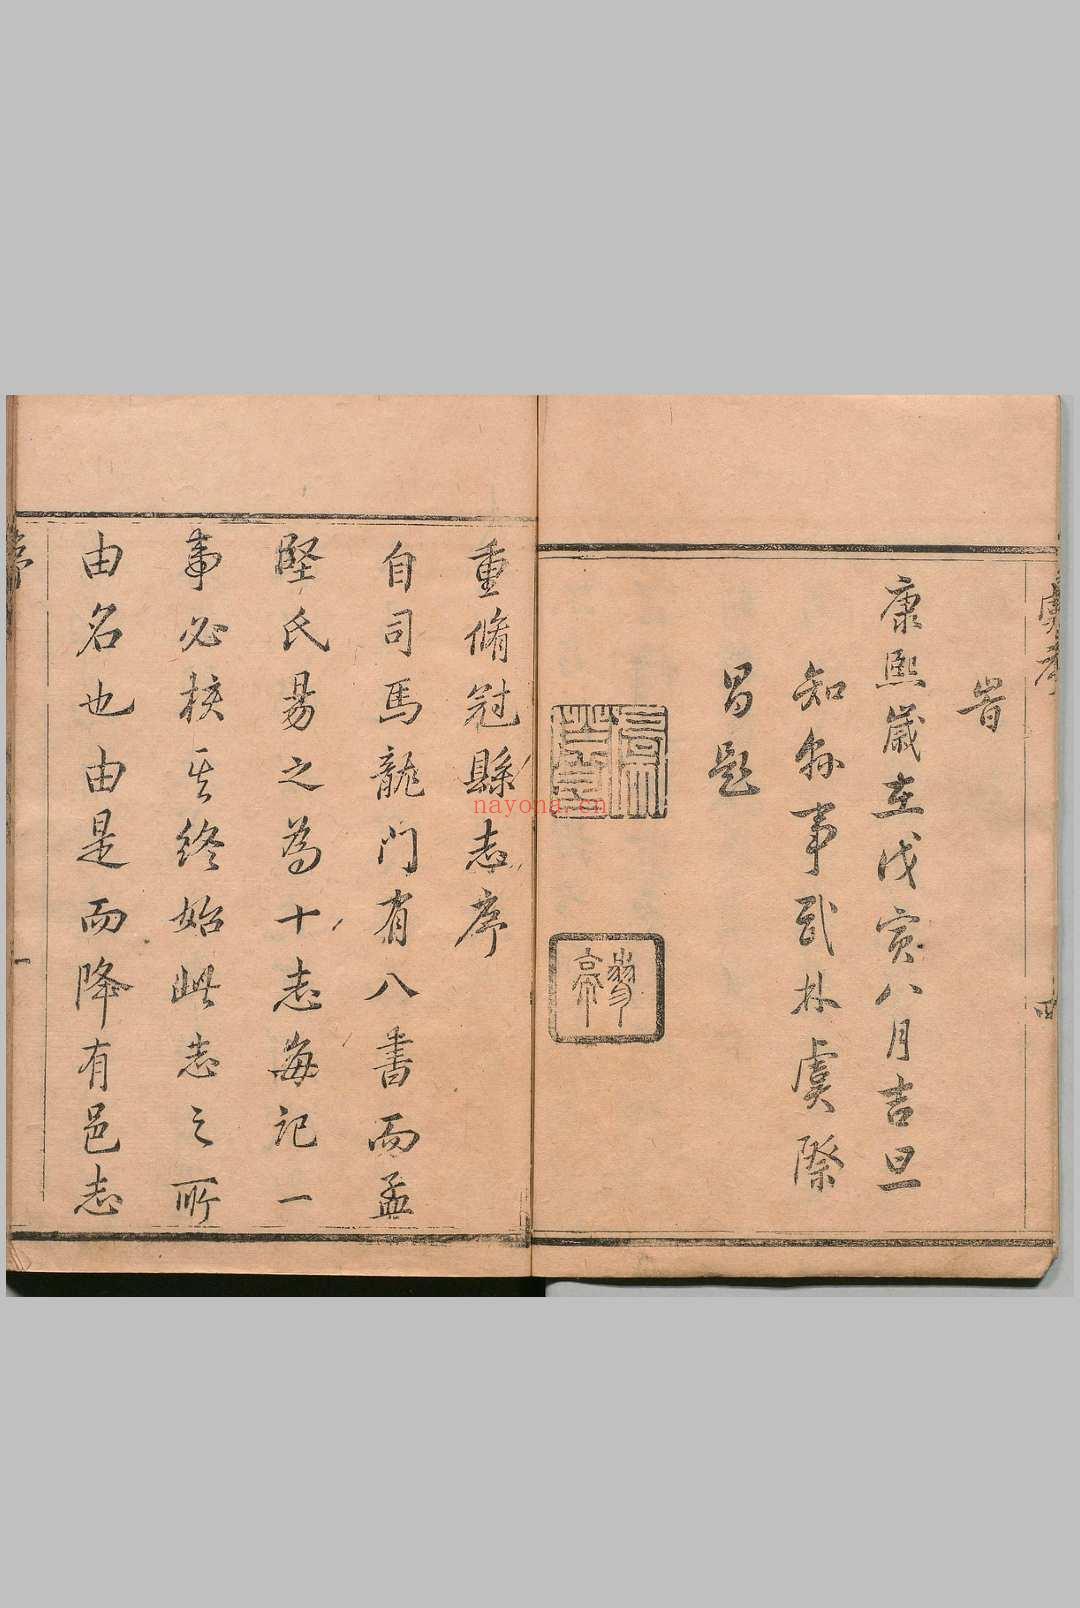 旹
康熙歲在戊寅八月吉旦
知縣事武林虞際
昌題
重脩冠縣志序
自司馬龍門有八書而孟
堅氏易之為十志每記一
事必核其終始此志之所
由名也由是而降有邑志
序
一
nayona.cn